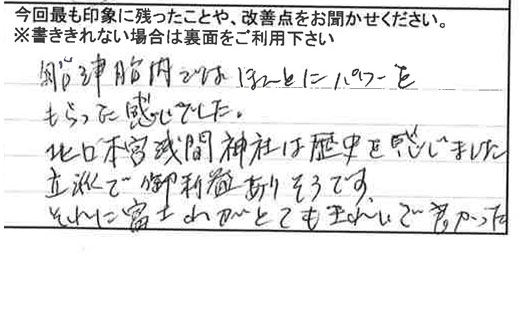 今回最も印象に残ったことや、改善点をお聞かせください。
※書ききれない場合は裏面をご利用下さい
船津胎内ではほんとにパワーを
もらった感じでした。
北口本宮浅間神社は歴史を感じました
立派で御利益ありそうです。
それに富士山がとてもきれいで良かった